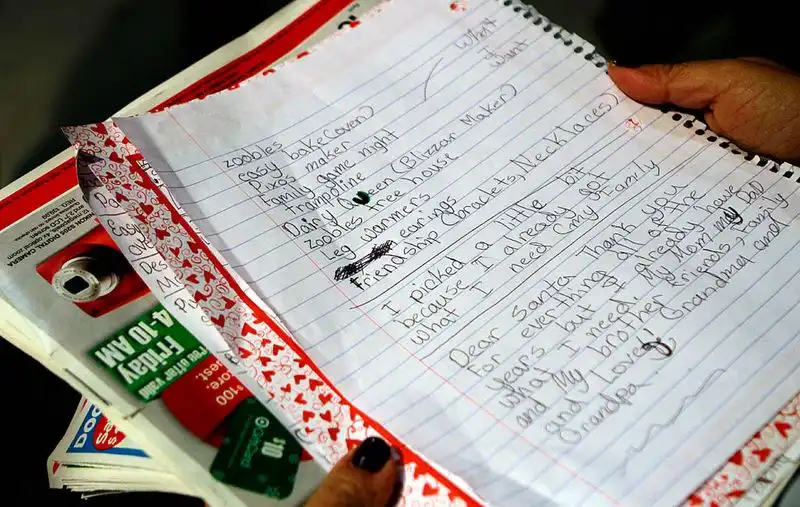 What
I want
zoobles
easy bake (oven)
Pixos maker
Family game night
trampoline
Dairy Queen (Blizzar Maker)
zoobles Tree house
leg warmers
earings
Friendship braclets, Necklaces
I picked a little bit
because I already got
what I need (my family
Dear santa thank you
for everything all of the
years but I already have
what I need. My Mom my DaD
and My brother friends, family
and Love, Grandma and
Grandpa
Po
Easy
Des
Friday
4-10 AM
$100
$10